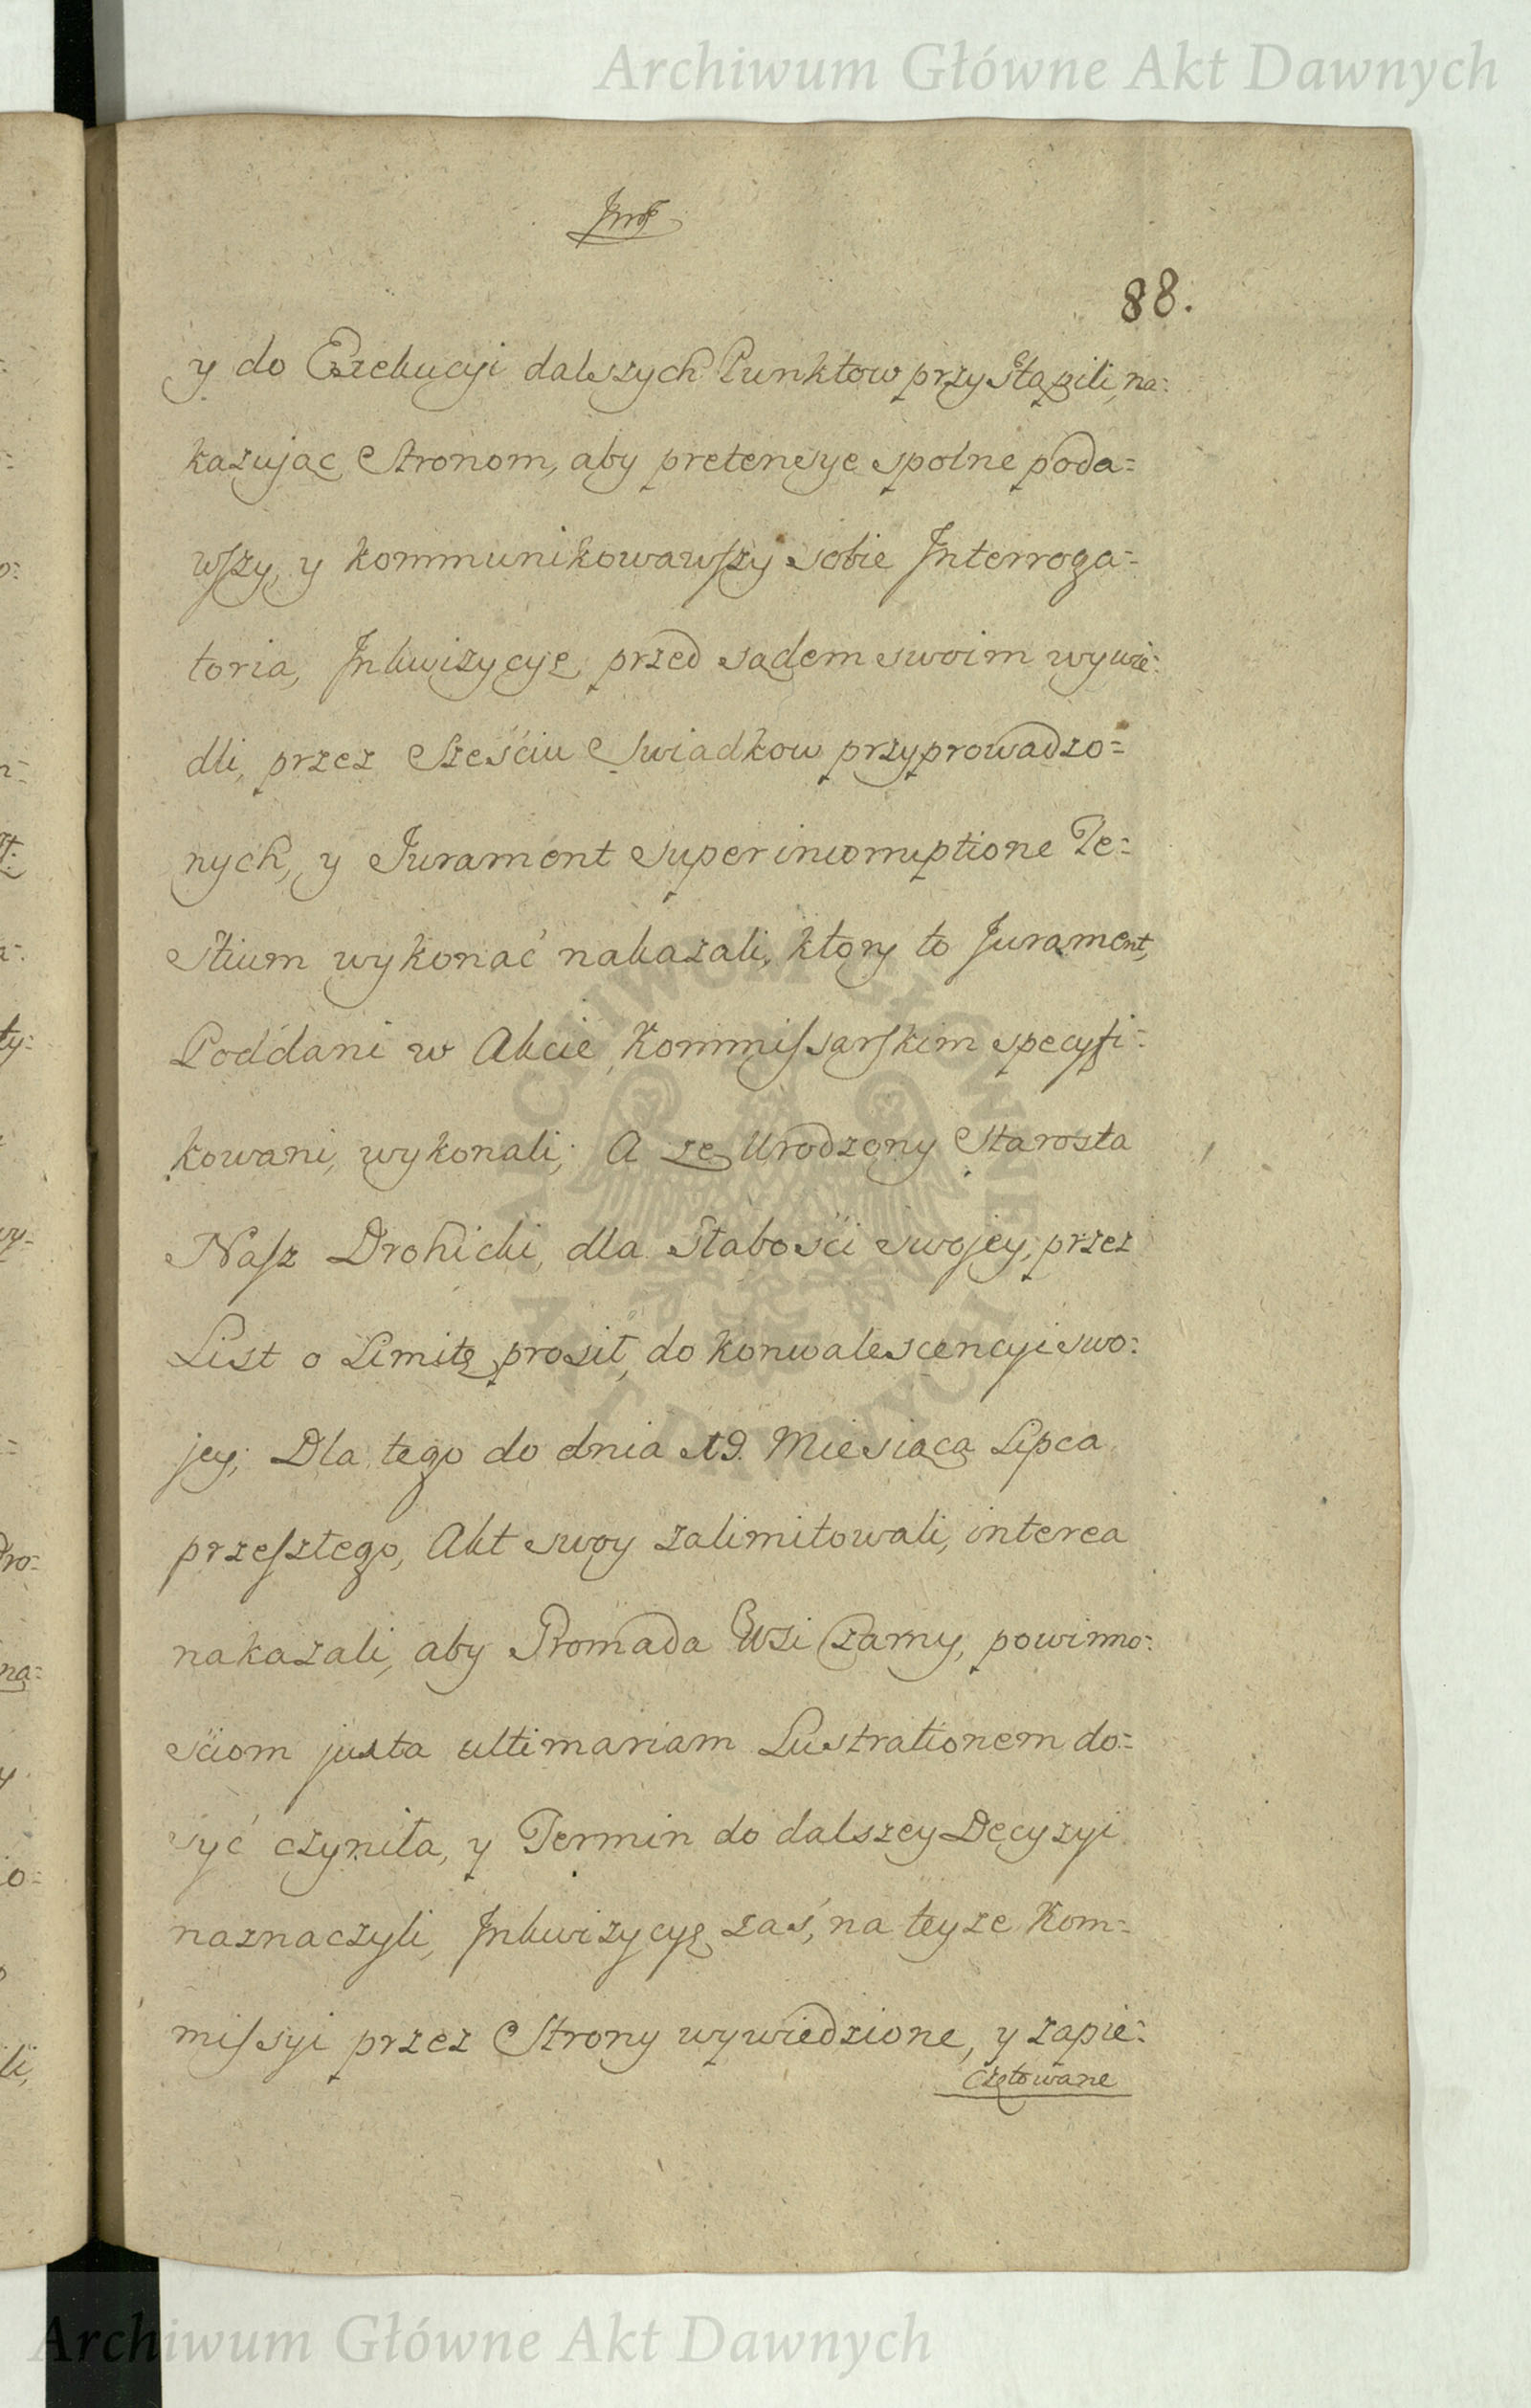 Archiwum Główne Akt Dawnych
88.
y do Exekucyi dalszych Punktow przystąpili, na=
kazując Stronom, aby pretensye spolne poda=
wszy, y kommunikowawszy sobie Interroga=
toria, Inkwizycyę, przed sądem swoim wywie=
dli, przez Sześciu Swiadkow przyprowadzo=
nych, y Jurament super incorruptione Te=
stium wykonać nakazali, ktory to Jurament,
Poddani w Akcie Kommissarskim specyfi=
kowani, wykonali; A że Urodzony Starosta
Nasz Drohicki, dla Słabości swojey, przez
List o Limitę prosił, do konwalescencyi swo=
jey; Dla tego do dnia 19. Miesiąca Lipca
przeszłego, Akt swoy zalimitowali, interea
nakazali, aby Gromada Wsi Czarny, powinno=
ściom juxta ultimariam Lustrationem do=
syć czyniła, y Termin do dalszey Decyzyi
naznaczyli, Inkwizycyę zaś, na teyże Kom=
missyi przez Strony wywiedzione, y zapie=
czętowane
Archiwum Główne Akt Dawnych